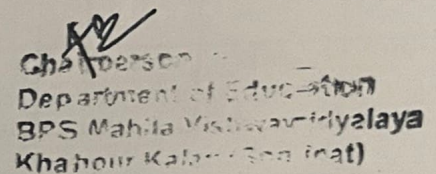 Chairperson
Department of Education
BPS Mahila Vishwavidyalaya
Khanpur Kalan (Sonipat)